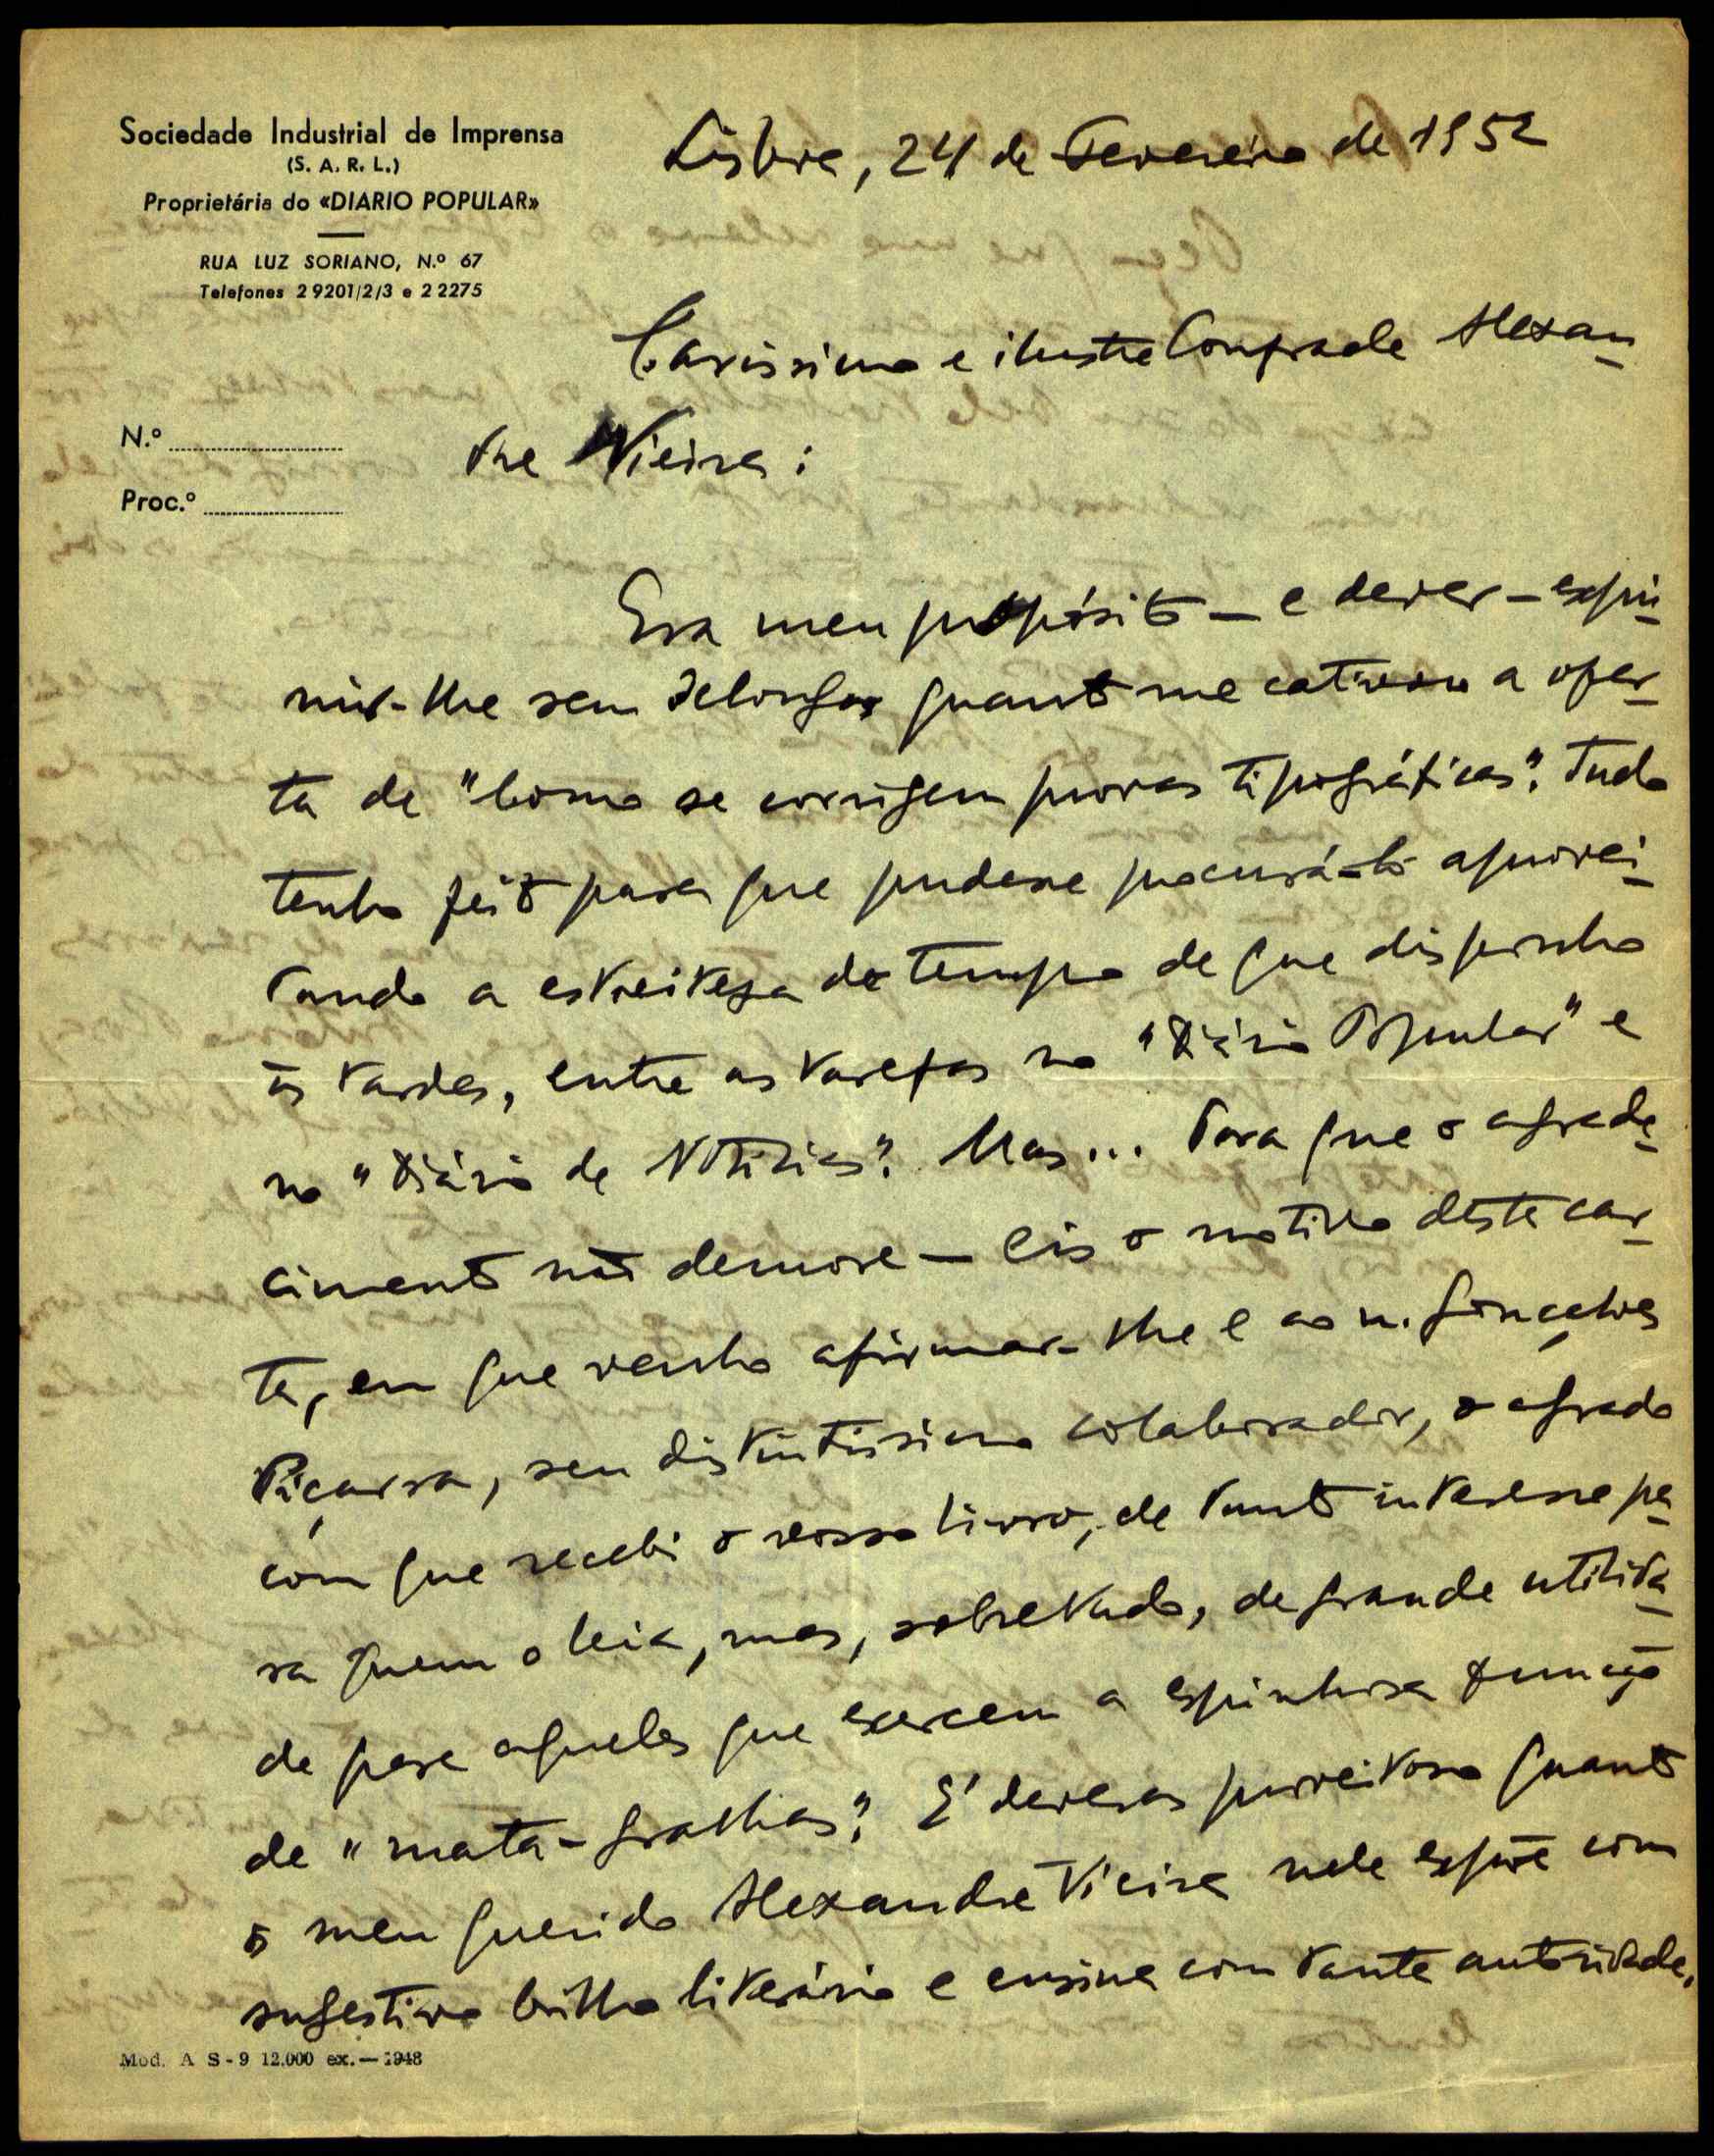 Sociedade Industrial de Imprensa
(S. A. R. L.)
Proprietária do «DIARIO POPULAR»
RUA LUZ SORIANO, N.º 67
Telefones 2 9201/2/3 e 2 2275
N.º
Proc.º
Lisboa, 24 de Fevereiro de 1952
Caríssimo e ilustre Confrade Alexan-
dre Vieira:
Era meu propósito — e dever — expri-
mir-lhe sem delongas quanto me cativou a ofer-
ta de "Como se corrigem provas tipográficas". Tudo
tenho feito para que pudesse procurá-lo aprovei-
tando a estreiteza do tempo de que disponho
às tardes, entre as tarefas no "Diário Popular" e
no "Diário de Notícias". Mas... Para que o agrade-
cimento não demore — eis o motivo desta car-
ta, em que venho afirmar-lhe e ao n. Gonçalves
Piçarra, seu distintíssimo colaborador, o agrado
com que recebi o vosso livro, de tanto interesse pa-
ra quem o leia, mas, sobretudo, de grande utilida-
de para aqueles que exercem a espinhosa função
de "mata-gralhas". É deveras proveitoso quanto
o meu querido Alexandre Vieira nele expõe com
sugestivo brilho literário e ensina com tanta autoridade.
Mod. A S - 9 12.000 ex. — 1948